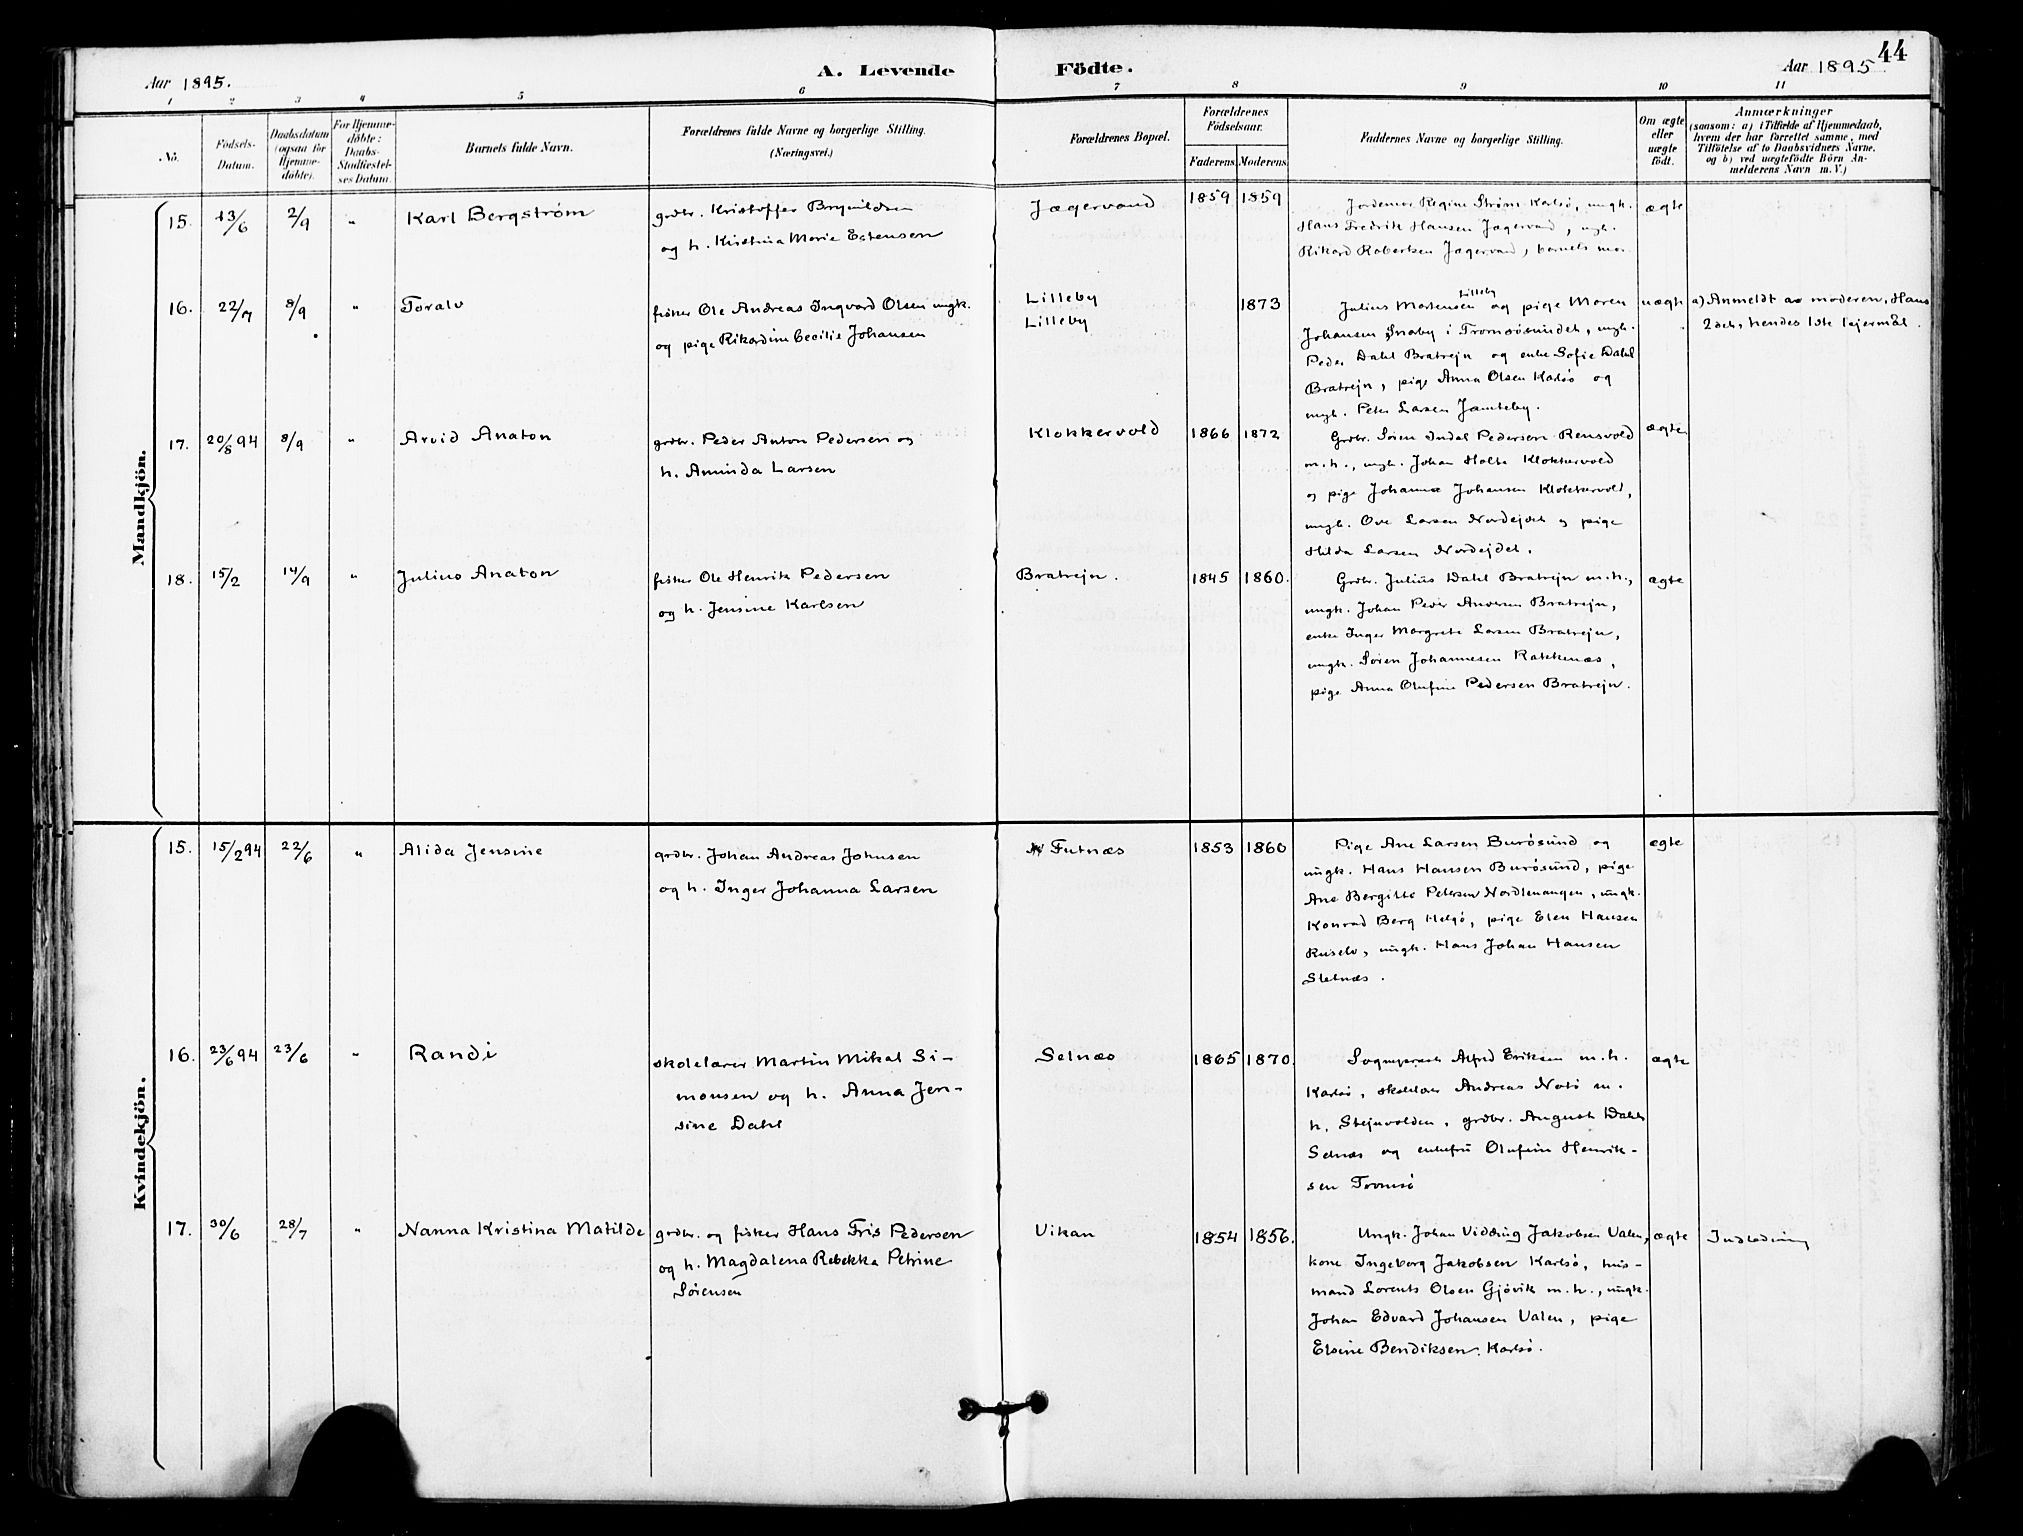 44
Aar 1895.
A. Levende
Födte.
Aar 1895
1 2 3 4 5 6 7 8 9 10 11
No.
Födsels-
Datum.
Daabsdatum
(ogsaa for
Hjemme-
döbte).
For Hjemme-
döbte:
Daabs-
Stadfæstel-
ses Datum.
Barnets fulde Navn.
Forældrenes fulde Navne og borgerlige Stilling.
(Næringsvei.)
Forældrenes Bopæl.
Forældrenes
Födselsaar.
Faderens. Moderens.
Faddernes Navne og borgerlige Stilling.
Om ægte
eller
uægte
födt.
Anmærkninger
(saasom: a) i Tilfælde af Hjemmedaab,
hvem der har forrettet samme, med
Tilföielse af to Daabsvidners Navne.
og b) ved uægtefödte Börn An-
melderens Navn m. V.)
Mandkjön.
15. 13/6 2/9 " Karl Bergström
grdbr. Kristoffer Brynildsen
og h. Kristina Marie Estensen
Jægervand
1859 1859
Jordemor Regine Ström Karlsö, ungk.
Hans Fredrik Hansen Jægervand, ugk.
Rikard Robertsen Jægervand, barnets mor.
ægte
16. 22/7 8/9 " Toralv
fisker Ole Andreas Ingvard Olsen ungk.
og pige Rikardine Cecilie Johansen
Lilleby
Lilleby
1873
Lilleby
Julius Mortensen og pige Maren
Johansen Snaby i Tromsösundet, ungk.
Peder Dahl Bratrejn og enke Sofie Dahl
Bratrejn, pige Anna Olsen Karlsö og
ungk. Peter Larsen Jamteby.
uægte
a) Anmeldt av moderen, Hans
2det, hendes 1ste lejermål.
17. 20/8 94 8/9 " Arvid Anaton
grdbr. Peder Anton Pedersen og
h. Aminda Larsen
Klokkervold
1866 1872
Grdbr. Sören Indal Pedersen Rensvold
m.h., ungk. Johan Holte Klokkervold
og pige Johanna Johansen Klokkervold,
ungk. Ove Larsen Nordejdet og pige
Hilda Larsen Nordejdet.
ægte
18. 15/2 14/9 " Julius Anaton
fisker Ole Henrik Pedersen
og h. Jensine Karlsen
Bratrejn.
1845 1860.
Grdbr. Julius Dahl Bratrejn m.h.,
ungk. Johan Peder Andersen Bratrejn,
enke Inger Margrete Larsen Bratrejn,
ungk. Sören Johannesen Rakkenæs,
pige Anna Olufine Pedersen Bratrejn.
ægte
Kvindekjön.
15. 15/2 94 22/6 " Alida Jensine
grdbr. Johan Andreas Johnsen
og h. Inger Johanna Larsen
Futnæs
1853 1860
Pige Ane Larsen Burösund og
ungk. Hans Hansen Burösund, pige
Ane Bergitte Petersen Nordlenangen, ungk.
Konrad Berg Helgö, pige Elen Hansen
Ruselv, ungk. Hans Johan Hansen
Sletnæs.
ægte
16. 23/6 94 23/6 " Randi
skolelærer Martin Mikal Si-
monsen og h. Anna Jen-
sine Dahl
Selnæs
1865 1870.
Sogneprest Alfred Eriksen m.h.
Karlsö, skolelærer Andreas Notö m.
h. Stejnvolden, grdbr. August Dahl
Selnæs og enkefru Olufine Henrik-
sen Tromsö
ægte
17. 30/6 28/7 " Nanna Kristina Matilde
grdbr. og fisker Hans Fris Pedersen
og h. Magdalena Rebekka Petrine
Sörensen
Vikan
1854 1856.
Ungk. Johan Vidding Jakobsen Valen,
kone Ingeborg Jakobsen Karlsö, hus-
mand Lorents Olsen Gjövik m.h., ungk.
Johan Edvard Johansen Valen, pige
Elsine Bendiksen Karlsö.
ægte
Indledning